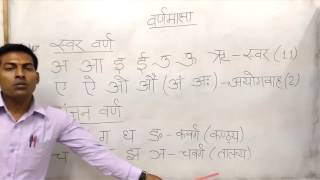 वर्णमाला
स्वर वर्ण
अ आ इ ई उ ऊ ऋ - स्वर (11)
ए ऐ ओ औ (अं अः) → अयोगवाह (2)
वर्ण
ग घ ङ - कवर्ग (कण्ठ्य)
च झ ञ - चवर्ग (तालव्य)